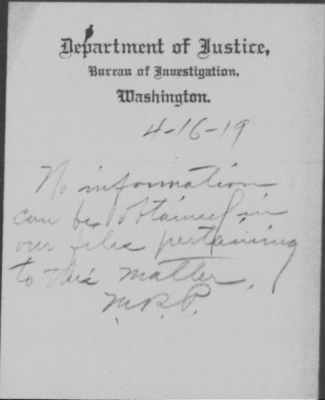 Department of Justice,
Bureau of Investigation,
Washington.
4-16-19
No information
can be obtained in
our files pertaining
to this matter.
M.R.P.